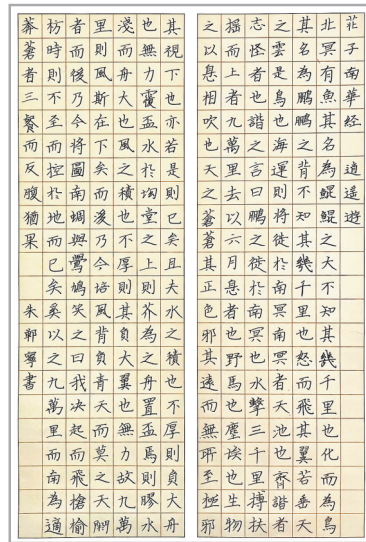 莊子南華経　逍遥遊
北冥有魚其名為鯤鯤之大不知其幾千里也化而為鳥
其名為鵬鵬之背不知其幾千里也怒而飛其翼若垂天
之雲是鳥也海運則將徙於南冥南冥者天池也齊諧者
志怪者也諧之言曰鵬之徙於南冥也水擊三千里摶扶
揺而上者九萬里去以六月息者也野馬也塵埃也生物
之以息相吹也天之蒼蒼其正色邪其遠而無所至極邪
其視下也亦若是則已矣且大水之積也不厚則負大舟
也無力覆盃水於坳堂之上則芥為之舟置盃焉則膠水
淺而舟大也風之積也不厚則其負大翼也無力故九萬
里則風斯在下矣而後乃今培風背負青天而莫之夭閼
者而後乃今將圖南蜩與鷽鳩笑之曰我決起而飛槍榆
枋時則不至而控於地而已矣奚以之九萬里而南為適
莽蒼者三餐而反腹猶果　朱鄲寧書